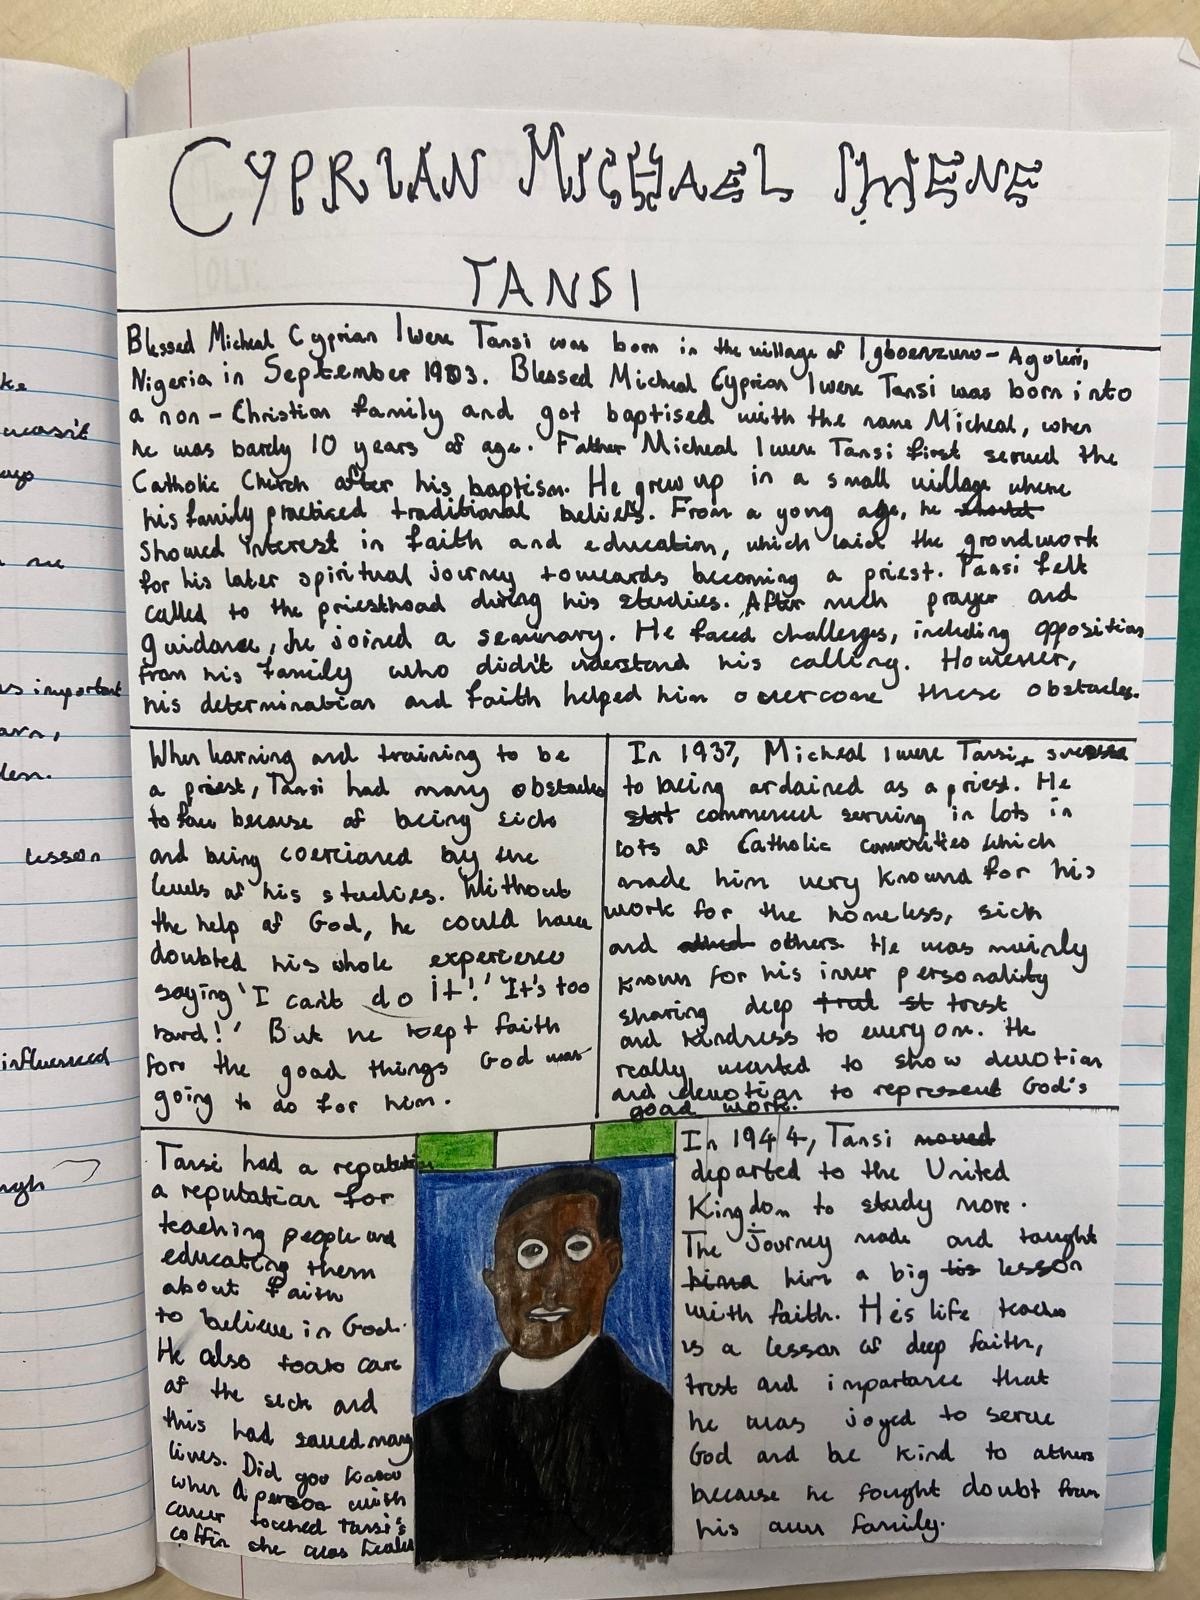 CYPRIAN MICHAEL IWENE
TANSI
Blessed Micheal Cyprian Iwene Tansi was born in the village of Igboenzunu - Aguleri,
Nigeria in September 1903. Blessed Micheal Cyprian Iwere Tansi was born into
a non - Christian family and got baptised with the name Micheal, when
he was barely 10 years of age. Father Micheal Iwere Tansi first served the
Catholic Church after his baptism. He grew up in a small village where
his family practised traditional beliefs. From a yong age, he should
showed interest in faith and education, which laid the grondwork
for his later spiritual journey towards becoming a priest. Tansi felt
called to the priesthood during his studies. After much prayer and
guidance, he joined a seminary. He faced challenges, including opposition
from his family who didn't understand his calling. However,
his determination and faith helped him overcome these obstacles.
When learning and training to be
a priest, Tansi had many obstacles
to face because of being sick
and being coerciared by the
levels of his studies. Without
the help of God, he could have
doubted his whole experience
saying 'I can't do it!' 'It's too
hard!' But he kept faith
for the good things God was
going to do for him.
In 1937, Micheal Iwere Tansi,
to being ordained as a priest. He
start commenced serving in lots in
lots of Catholic comunities which
made him very known for his
work for the homeless, sick
and others. He was mainly
known for his inner personality
sharing deep trust
and kindness to everyone. He
really wanted to show devotion
and devotion to represent God's
good work.
Tansi had a reputation
a reputation for
teaching people and
educating them
about faith
to believe in God.
He also took care
of the sick and
this had saved many
lives. Did you know
when a person with
cancer touched Tansi's
coffin she was healed
In 1944, Tansi moved
departed to the United
Kingdom to study more.
The Journey made and taught
him a big lesson
with faith. His life
is a lesson of deep faith,
trust and importance that
he was joyed to serve
God and be kind to others
because he fought doubt from
his own family.
important
lesson
influenced